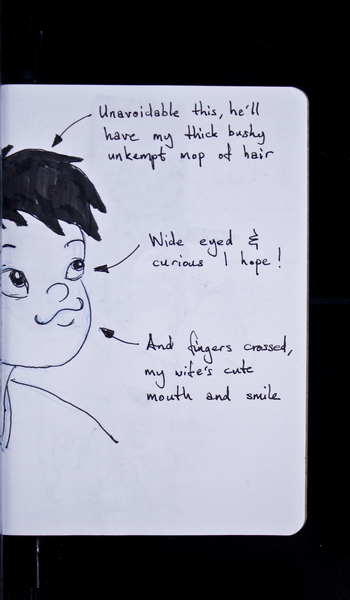 Unavoidable this, he'll
have my thick bushy
unkempt mop of hair
Wide eyed &
curious I hope!
And fingers crossed,
my wife's cute
mouth and smile